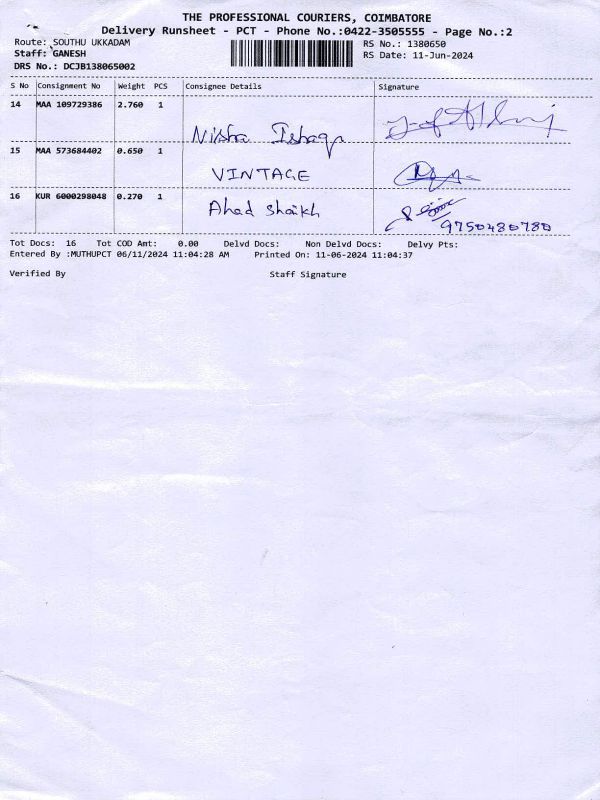 THE PROFESSIONAL COURIERS, COIMBATORE
Delivery Runsheet - PCT - Phone No.:0422-3505555 - Page No.:2
Route: SOUTHU UKKADAM RS No.: 1380650
Staff: GANESH RS Date: 11-Jun-2024
DRS No.: DCJB138065002
S No Consignment No Weight PCS Consignee Details Signature
14 MAA 109729386 2.760 1
Nisha Ishaq
15 MAA 573684402 0.650 1
VINTAGE
16 KUR 6000298048 0.270 1
Ahad Shaikh
9750480780
Tot Docs: 16 Tot COD Amt: 0.00 Delvd Docs: Non Delvd Docs: Delvy Pts:
Entered By :MUTHUPCT 06/11/2024 11:04:28 AM Printed On: 11-06-2024 11:04:37
Verified By Staff Signature